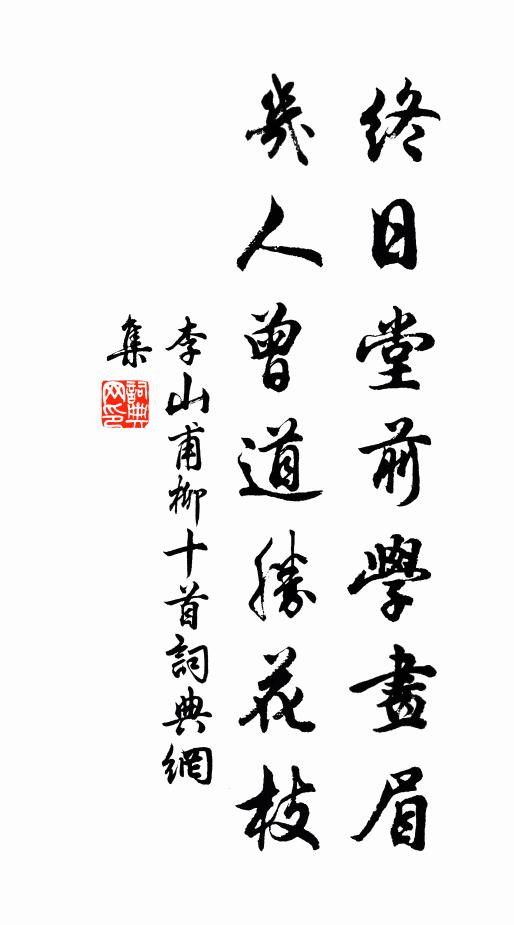 終日堂前學畫眉
幾人曾道勝花枝
李山甫柳十首詞典網
集
詞典網印